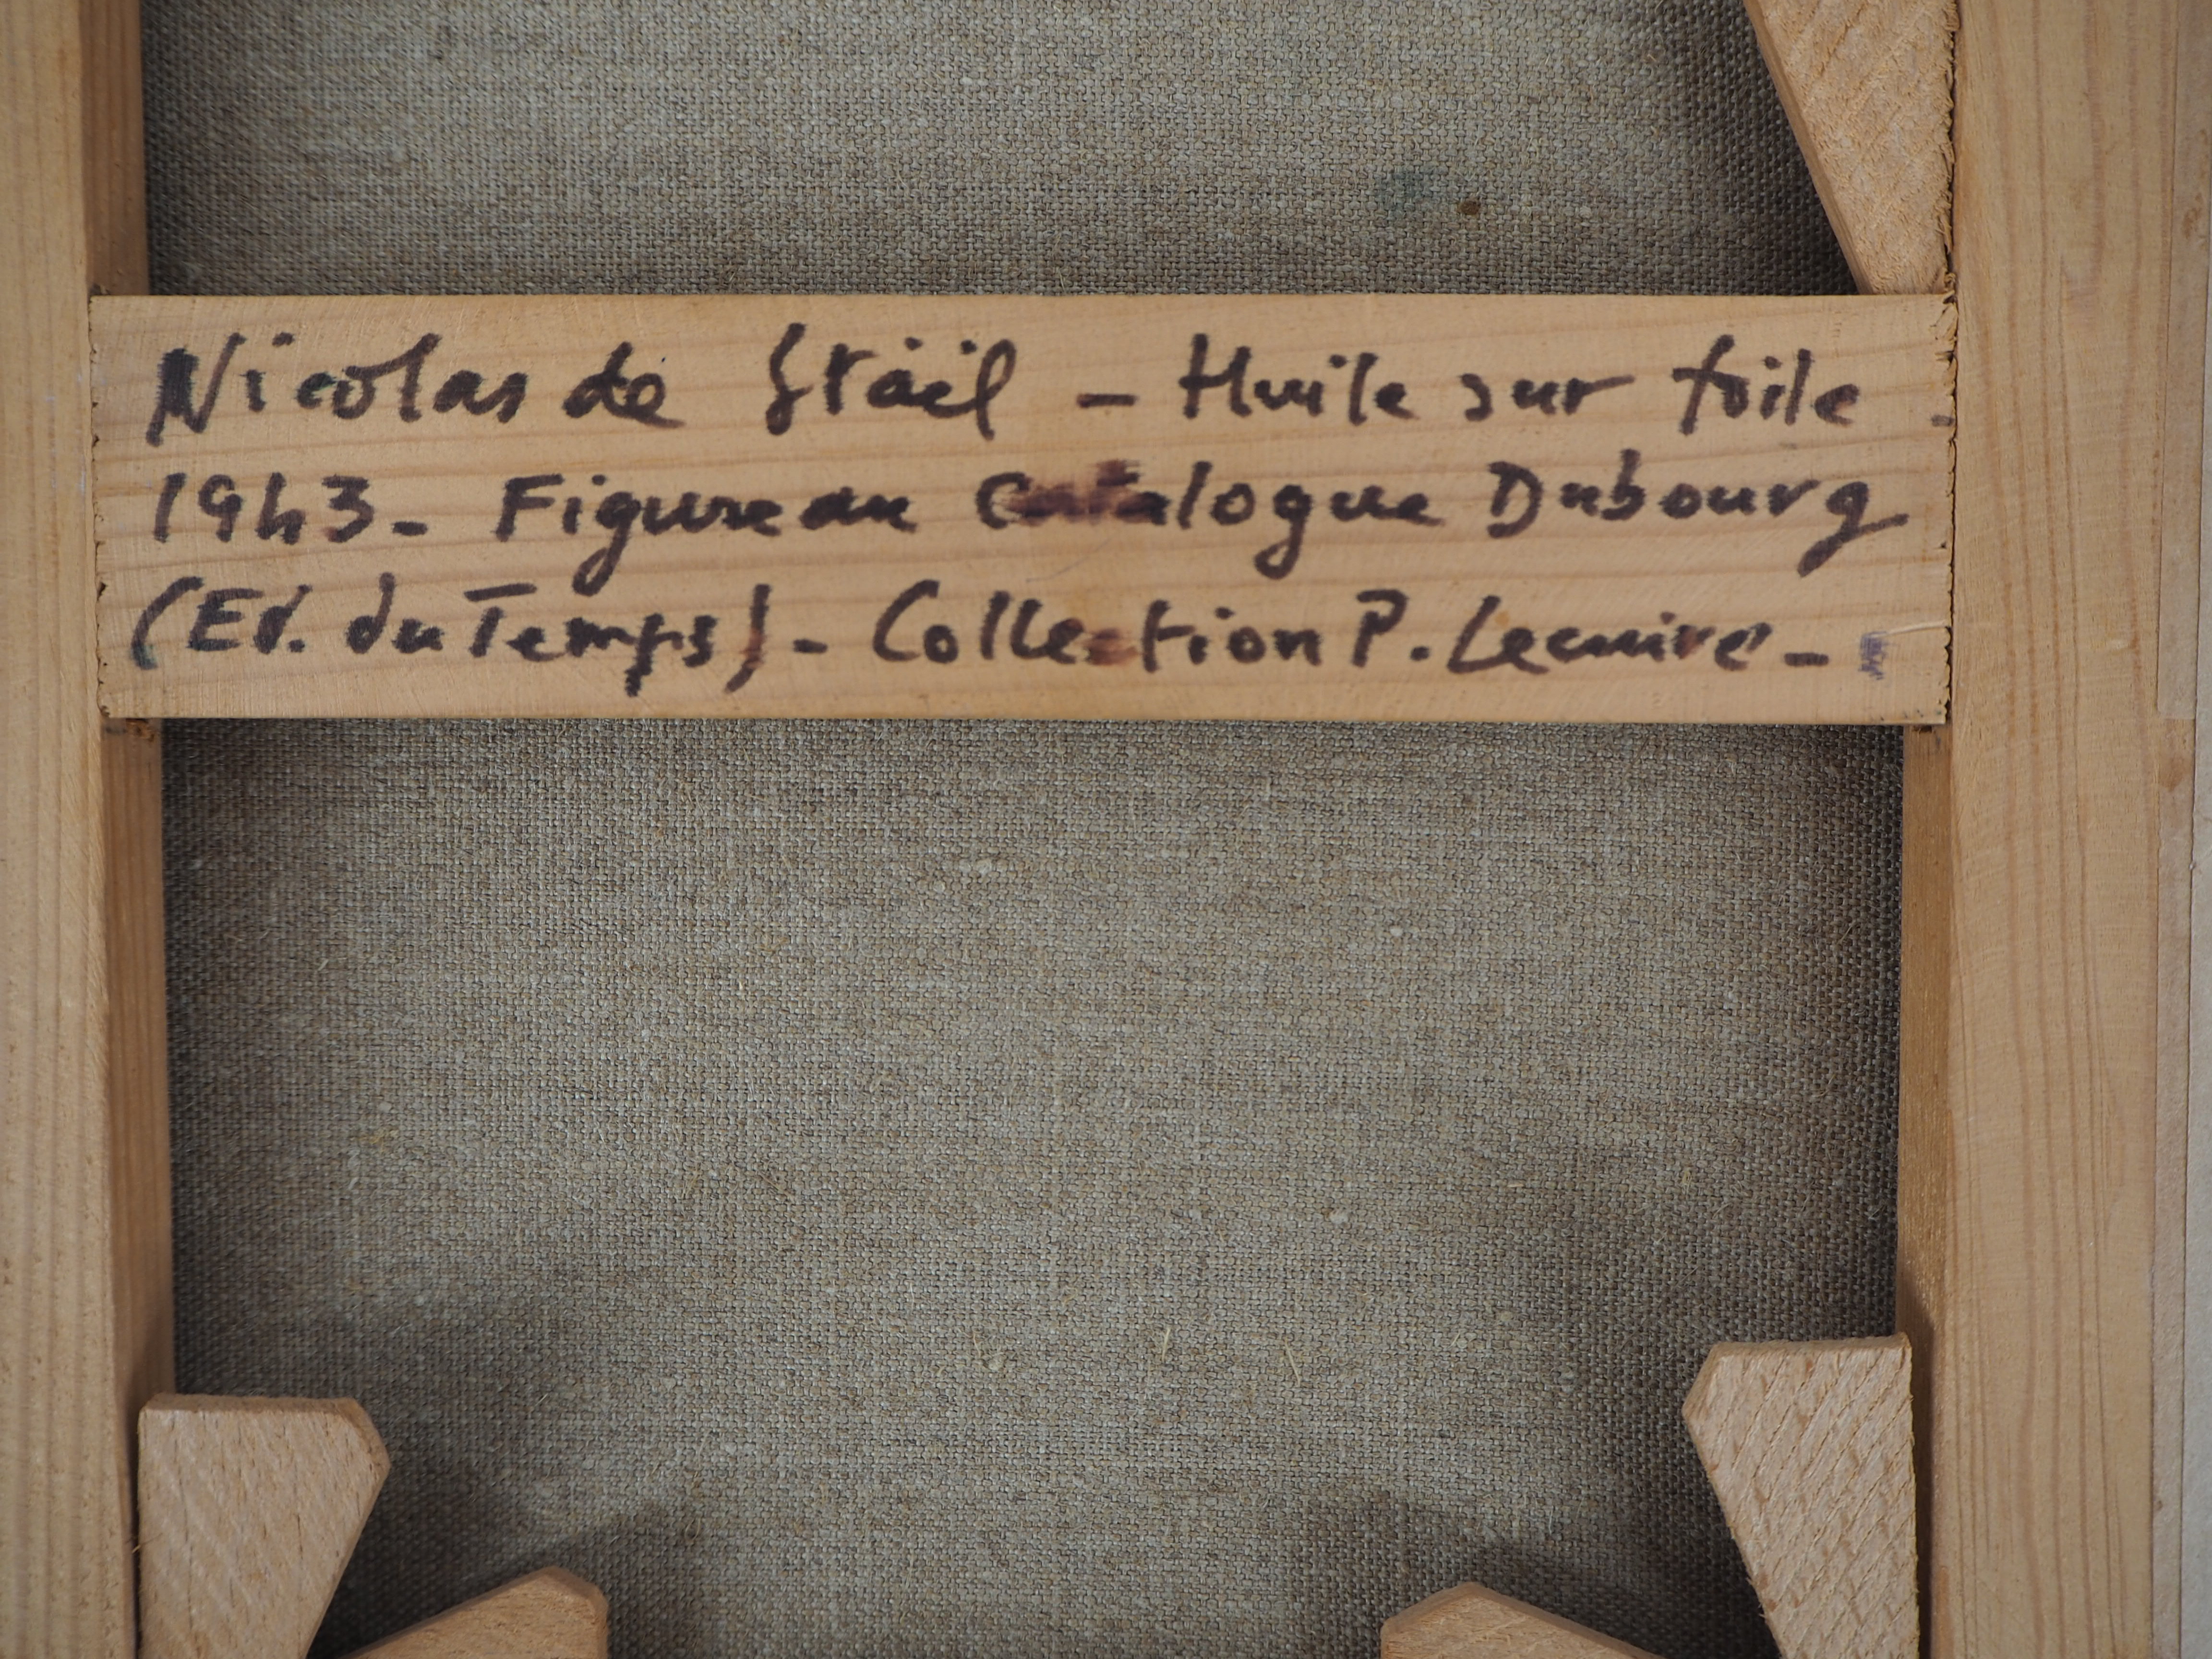 Nicolas de Stäel - Huile sur toile -
1943 - Figure au Catalogue Dubourg
(Ed. du Temps) - Collection P. Lecuire -